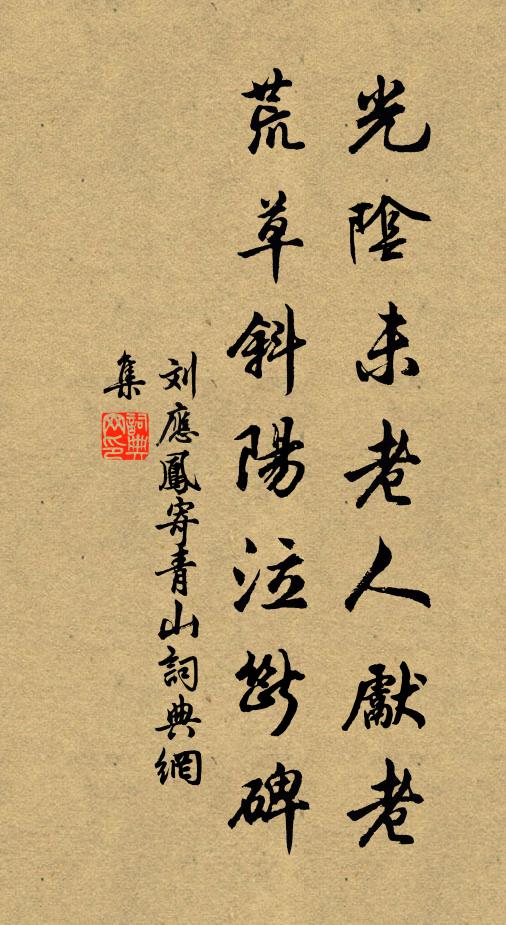 光陰未老人獻老
荒草斜陽泣斷碑
刘應鳳寄青山詞典網
集
詞典網印